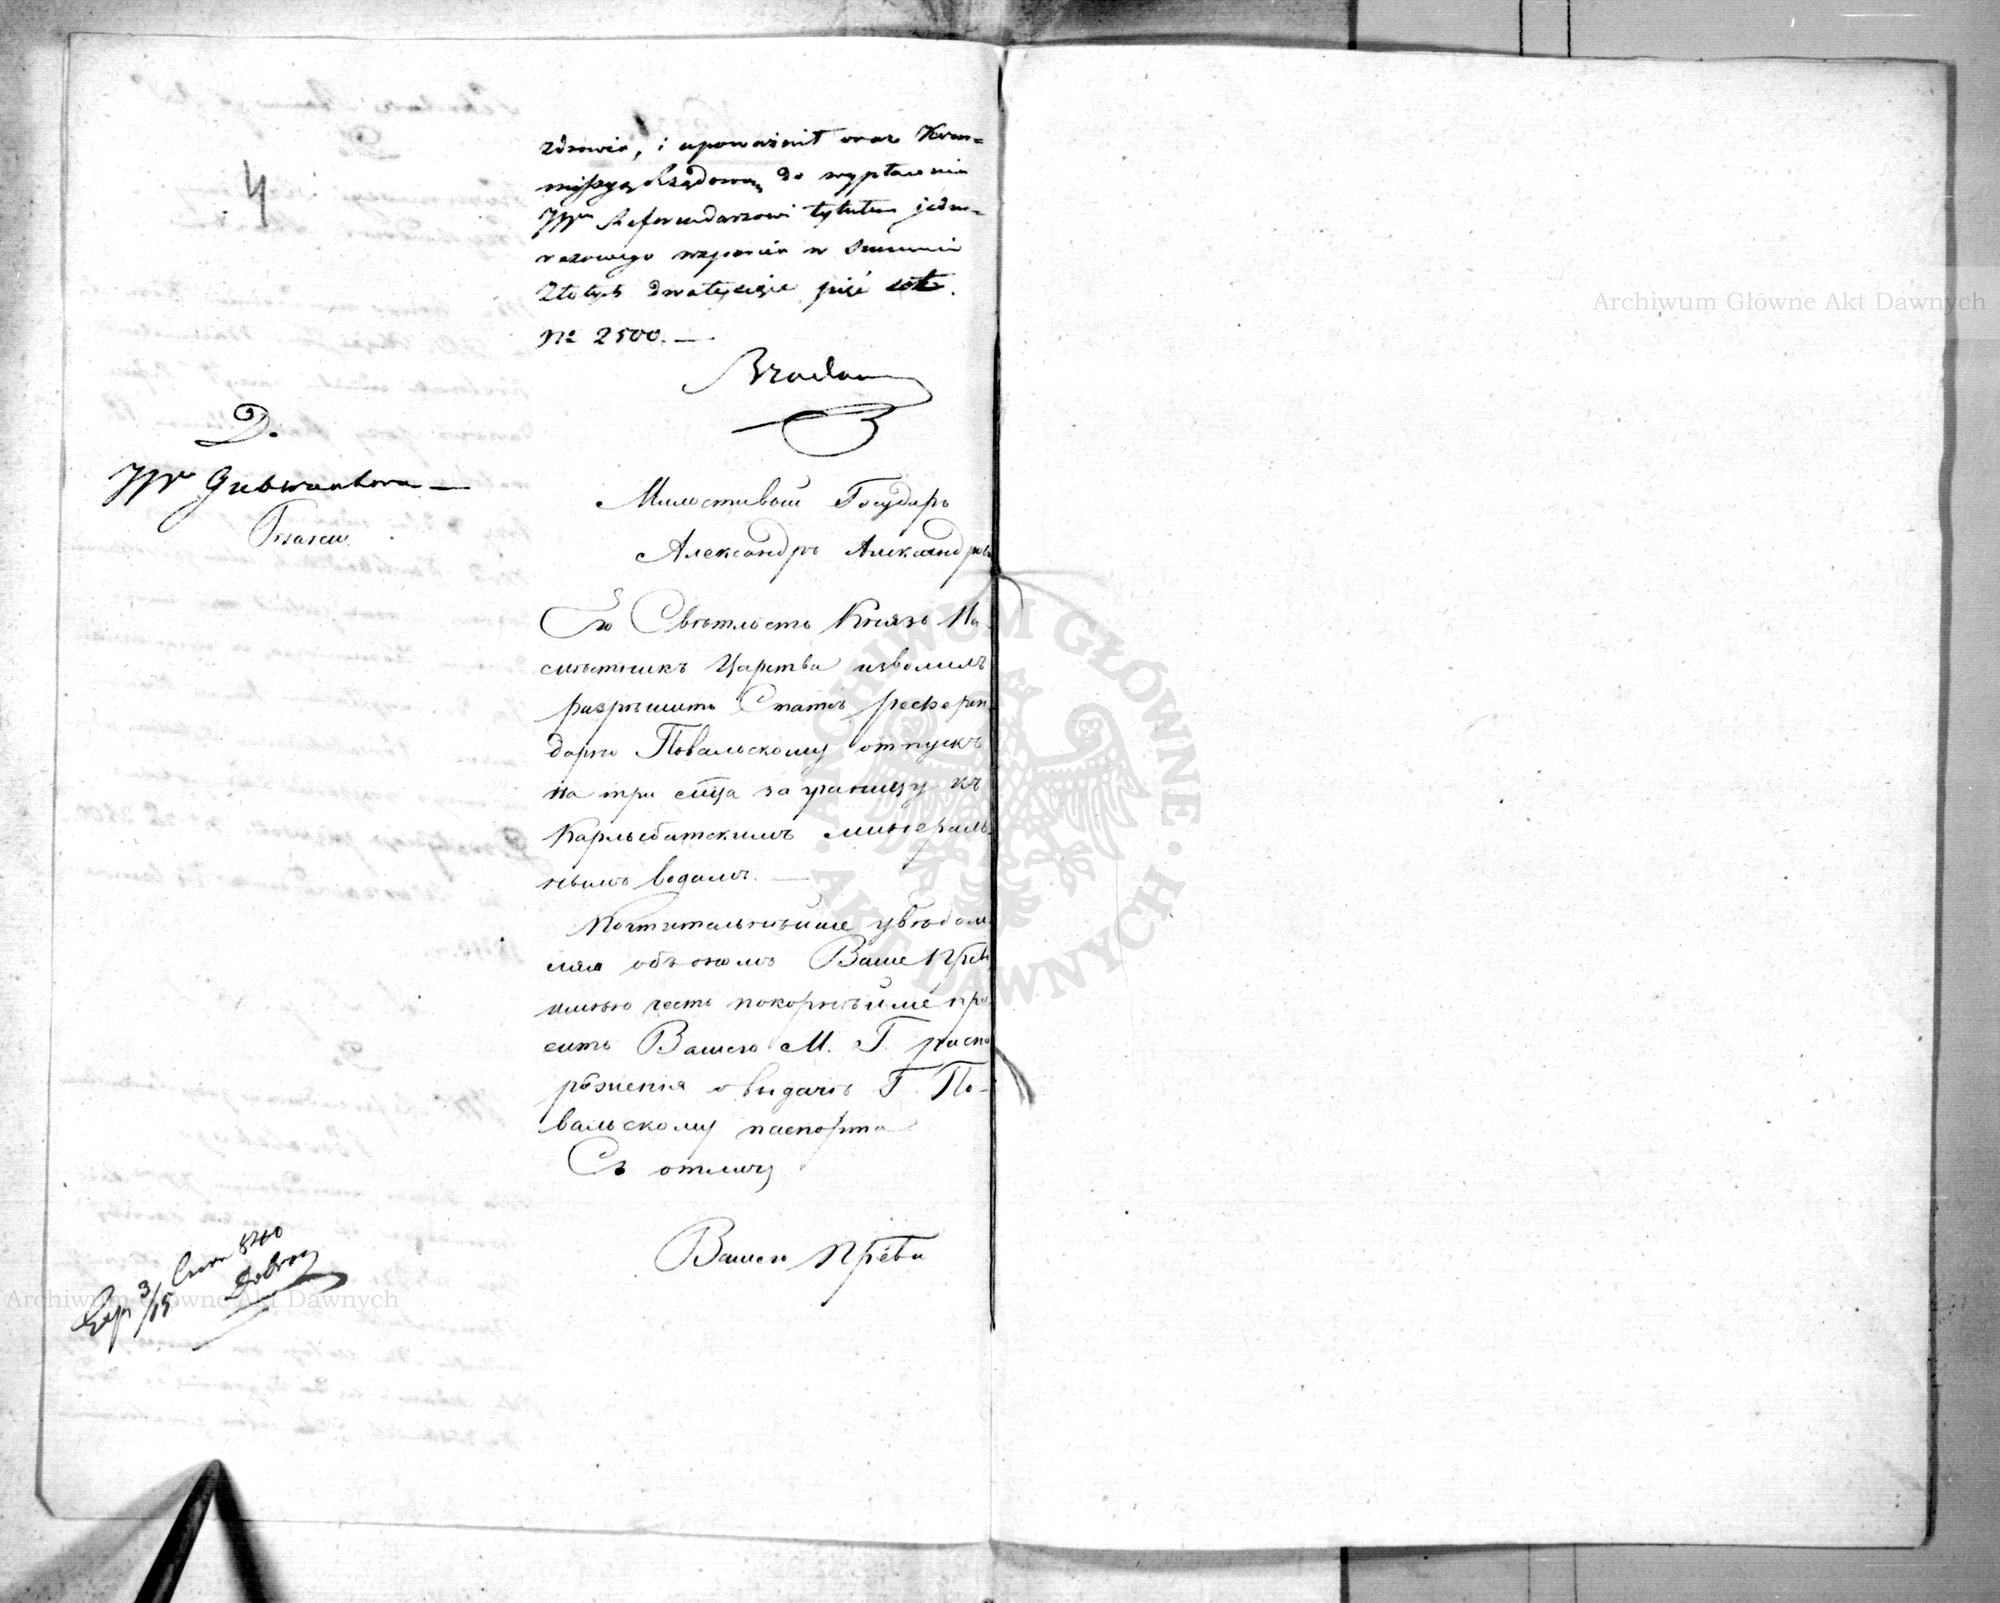 4
zdrowia, i upoważnił oraz Kom-
missyą Rządową do wypłacenia
JWu Referendarzowi tytułem jedno-
razowego wsparcia w Summie
Złotych dwatysiące pięć set.
No 2500. —
D.
JWo Gubernatora —
Милостивый Государь
Александръ Александров
Его Свѣтлость Князь На-
мѣстникъ Царства изволилъ
разрѣшить Статсъ референ
дарю Повальскому отпускъ
на три мѣца за границу къ
Карльсбатскимъ минераль-
нымъ водамъ. —
Почтительнѣйше увѣдом
ляя объ ономъ Ваше Прев
имѣю честь покорнѣйше про
сить Вашего М. Г. распо
ряженія о выдачѣ Г. По-
вальскому паспорта
Съ отлич
Вашего Прева
Exp 3/15 Czerw 840
Archiwum Główne Akt Dawnych
Archiwum Główne Akt Dawnych
ARCHIWUM GŁÓWNE · AKT DAWNYCH ·